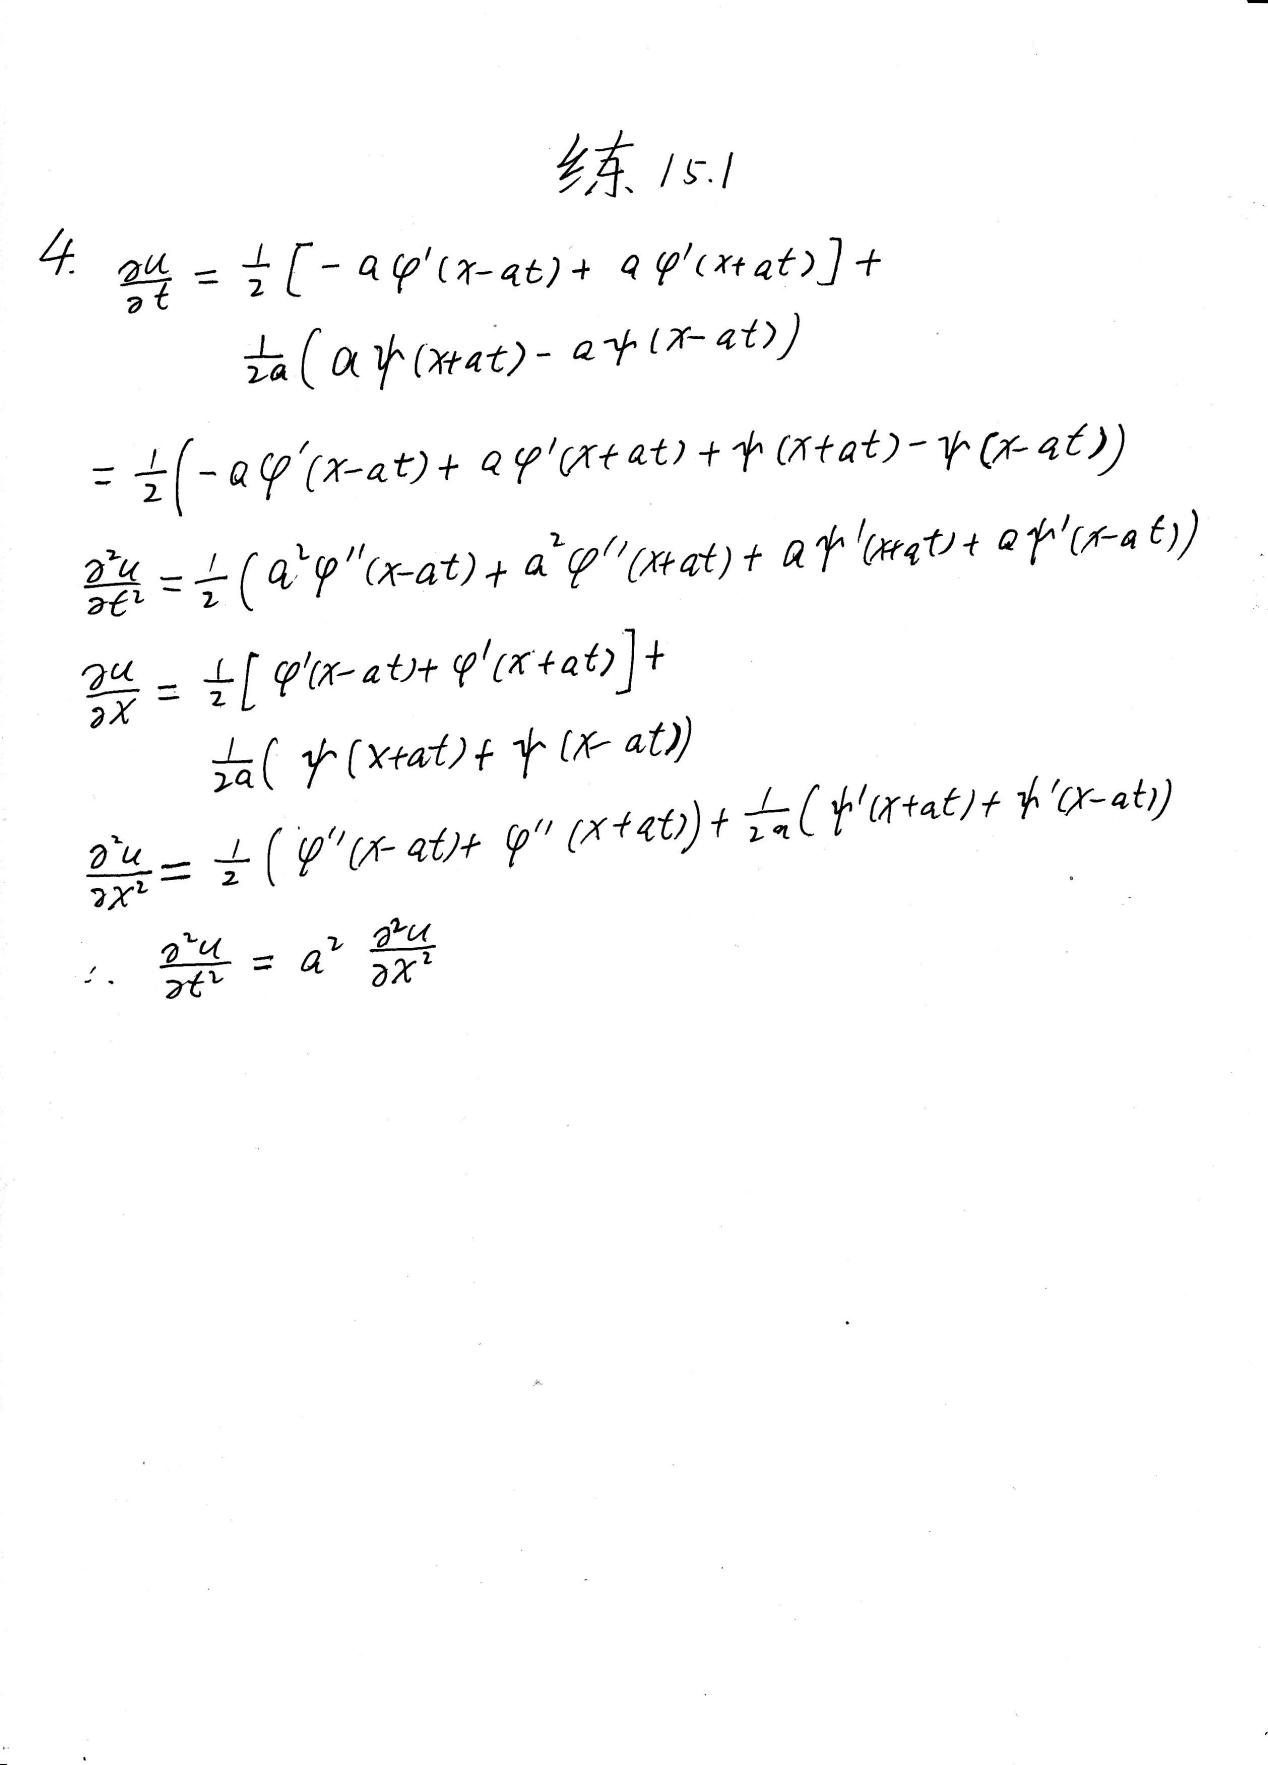 练 15.1
4. ∂u/∂t = 1/2 [-aφ'(x-at)+ aφ'(x+at)] +
1/2a (aψ(x+at)- aψ(x-at))
= 1/2 (-aφ'(x-at)+ aφ'(x+at)+ψ(x+at)-ψ(x-at))
∂²u/∂t² = 1/2 (a²φ''(x-at)+ a²φ''(x+at)+ aψ'(x+at)+ aψ'(x-at))
∂u/∂x = 1/2 [φ'(x-at)+ φ'(x+at)] +
1/2a (ψ(x+at)+ψ(x-at))
∂²u/∂x² = 1/2 (φ''(x-at)+ φ''(x+at)) + 1/2a (ψ'(x+at)+ ψ'(x-at))
∴ ∂²u/∂t² = a² ∂²u/∂x²